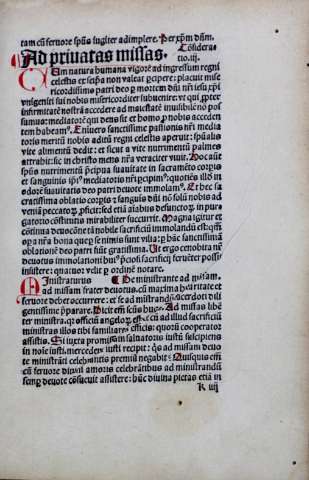 tam cū fervore spūs iugiter adimplere. Per xp̄m dn̄m.
Ad privatas missas.
Cōsidera
tio.iij.
CUm natura humana vigorē ad ingressum regni
celestis et seip̄a non valeat p̄cipere: placuit mise
ricordissimo patri deo per mortem dn̄i n̄ri iesu xp̄i
vnigeniti sui nobis misericorditer subuenire: vt qui ꝓpter
infirmitatē nostrā accedere ad maiestatē inuisibilē no pos
sumus: mediatorē qui deus sit et homo ꝓ nobis acceden
tem habeamꝰ. Enimero sanctissime passionis n̄ri media
toris meritū nobis aditū regni celestis aperuit: spūalis
vite alimentū dedit: et sicut a vite nutrimentū palmes
attrahit: sic in christo mens n̄ra veraciter viuit. Hoc aūt
spūs nutrimentū p̄cipua suauitate in sacramēto corpis
et sanguinis ip̄iꝰ mediatoris n̄ri p̄cipimꝰ: quotiēs illō in
odorē suauitatis deo patri deuote immolamꝰ. Et hec sa
cratissima oblatio corpis et sanguīs dn̄i nō solū nobis ad
veniā peccatoꝝ ꝓficit: sed etiā aīabus defunctoꝝ in pur
gatorio cōstitutis mirabiliter succurrit. Magna igitur et
cōtinua deuocōne tā nobile sacrificiū immolandū est: qm̄
op̄a n̄ra bona que p̄ se nimis sunt vilia: ꝑ hanc sanctissimā
oblationē deo patri fiunt gratissima. Ut ergo cenobita n̄r
deuotus immolationi huiꝰ p̄ciosi sacrificij feruēter possit
insistere: quatuor velit ꝑ ordinē notare.
MInistraturus De ministrante ad missam.
ad missam frater deuotus: cū maxima hilaritate et
feruore debet occurrere: et se ad mīstrandū sacerdoti dili
gentissime p̄parare. Dicit em̄ scūs hugo. Ad missas libē
ter ministra. qꝫ officiū angeloꝝ est. Cū ad illud sacrificiū
ministras illos tibi familiares efficis: quoꝝ cooperator
assistis. Si iuxta promissum saluatoris iustū suscipiens
in noīe iusti: mercedem iusti recipit: qn̄s ad missam deuo
te ministranti celebrantis premiū negabit? Quisquis em̄
cū feruore diuini amoris celebrātibus ad ministrandū
semꝑ deuote cōsueuit assistere: hunc diuina pietas etiā in
K iij